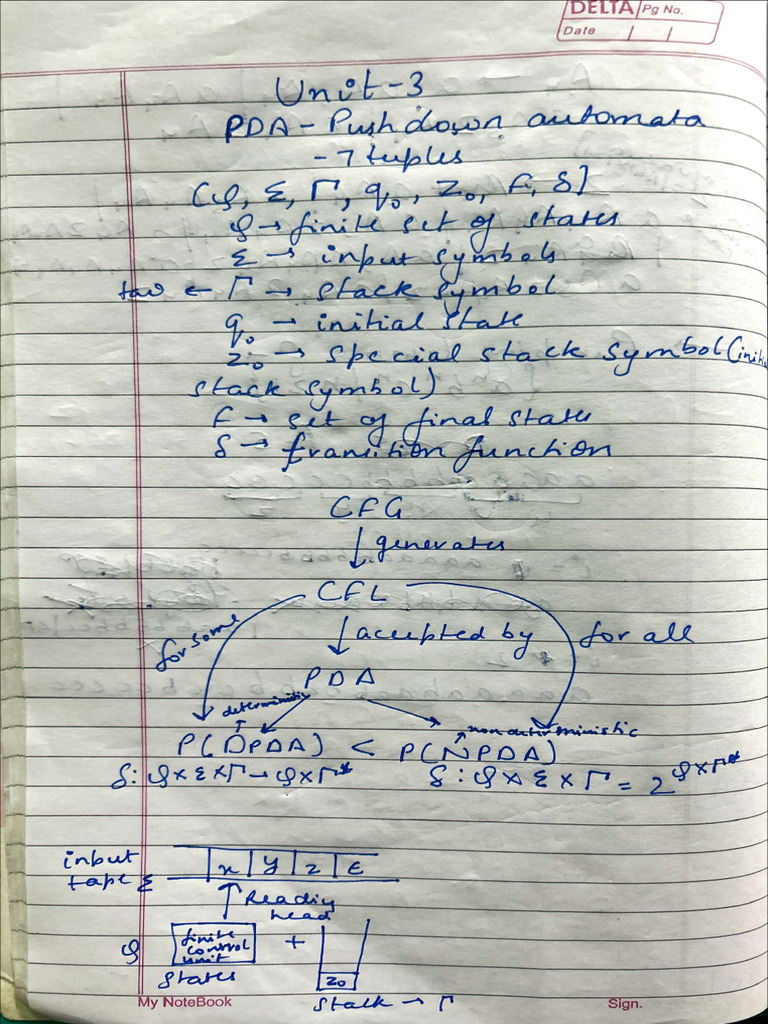 DELTA Pg No.
Date / /
Unit-3
PDA - Pushdown automata
- 7 tuples
(Q, Σ, Γ, q₀, Z₀, F, δ]
Q → finite set of states
Σ → input symbols
tau ← Γ → stack symbol
q₀ → initial state
Z₀ → special stack symbol (initial
stack symbol)
F → set of final states
δ → transition function
CFG
↓ generates
CFL
for some ↓ accepted by for all
PDA
deterministic non deterministic
P(DPDA) < P(NPDA)
δ: Q×Σ×Γ → Q×Γ* δ: Q×Σ×Γ = 2^Q×Γ*
input x | y | z | ε
tape Σ
↑ Reading
head
Q finite control unit +
states Z₀
stack → Γ
My NoteBook Sign.